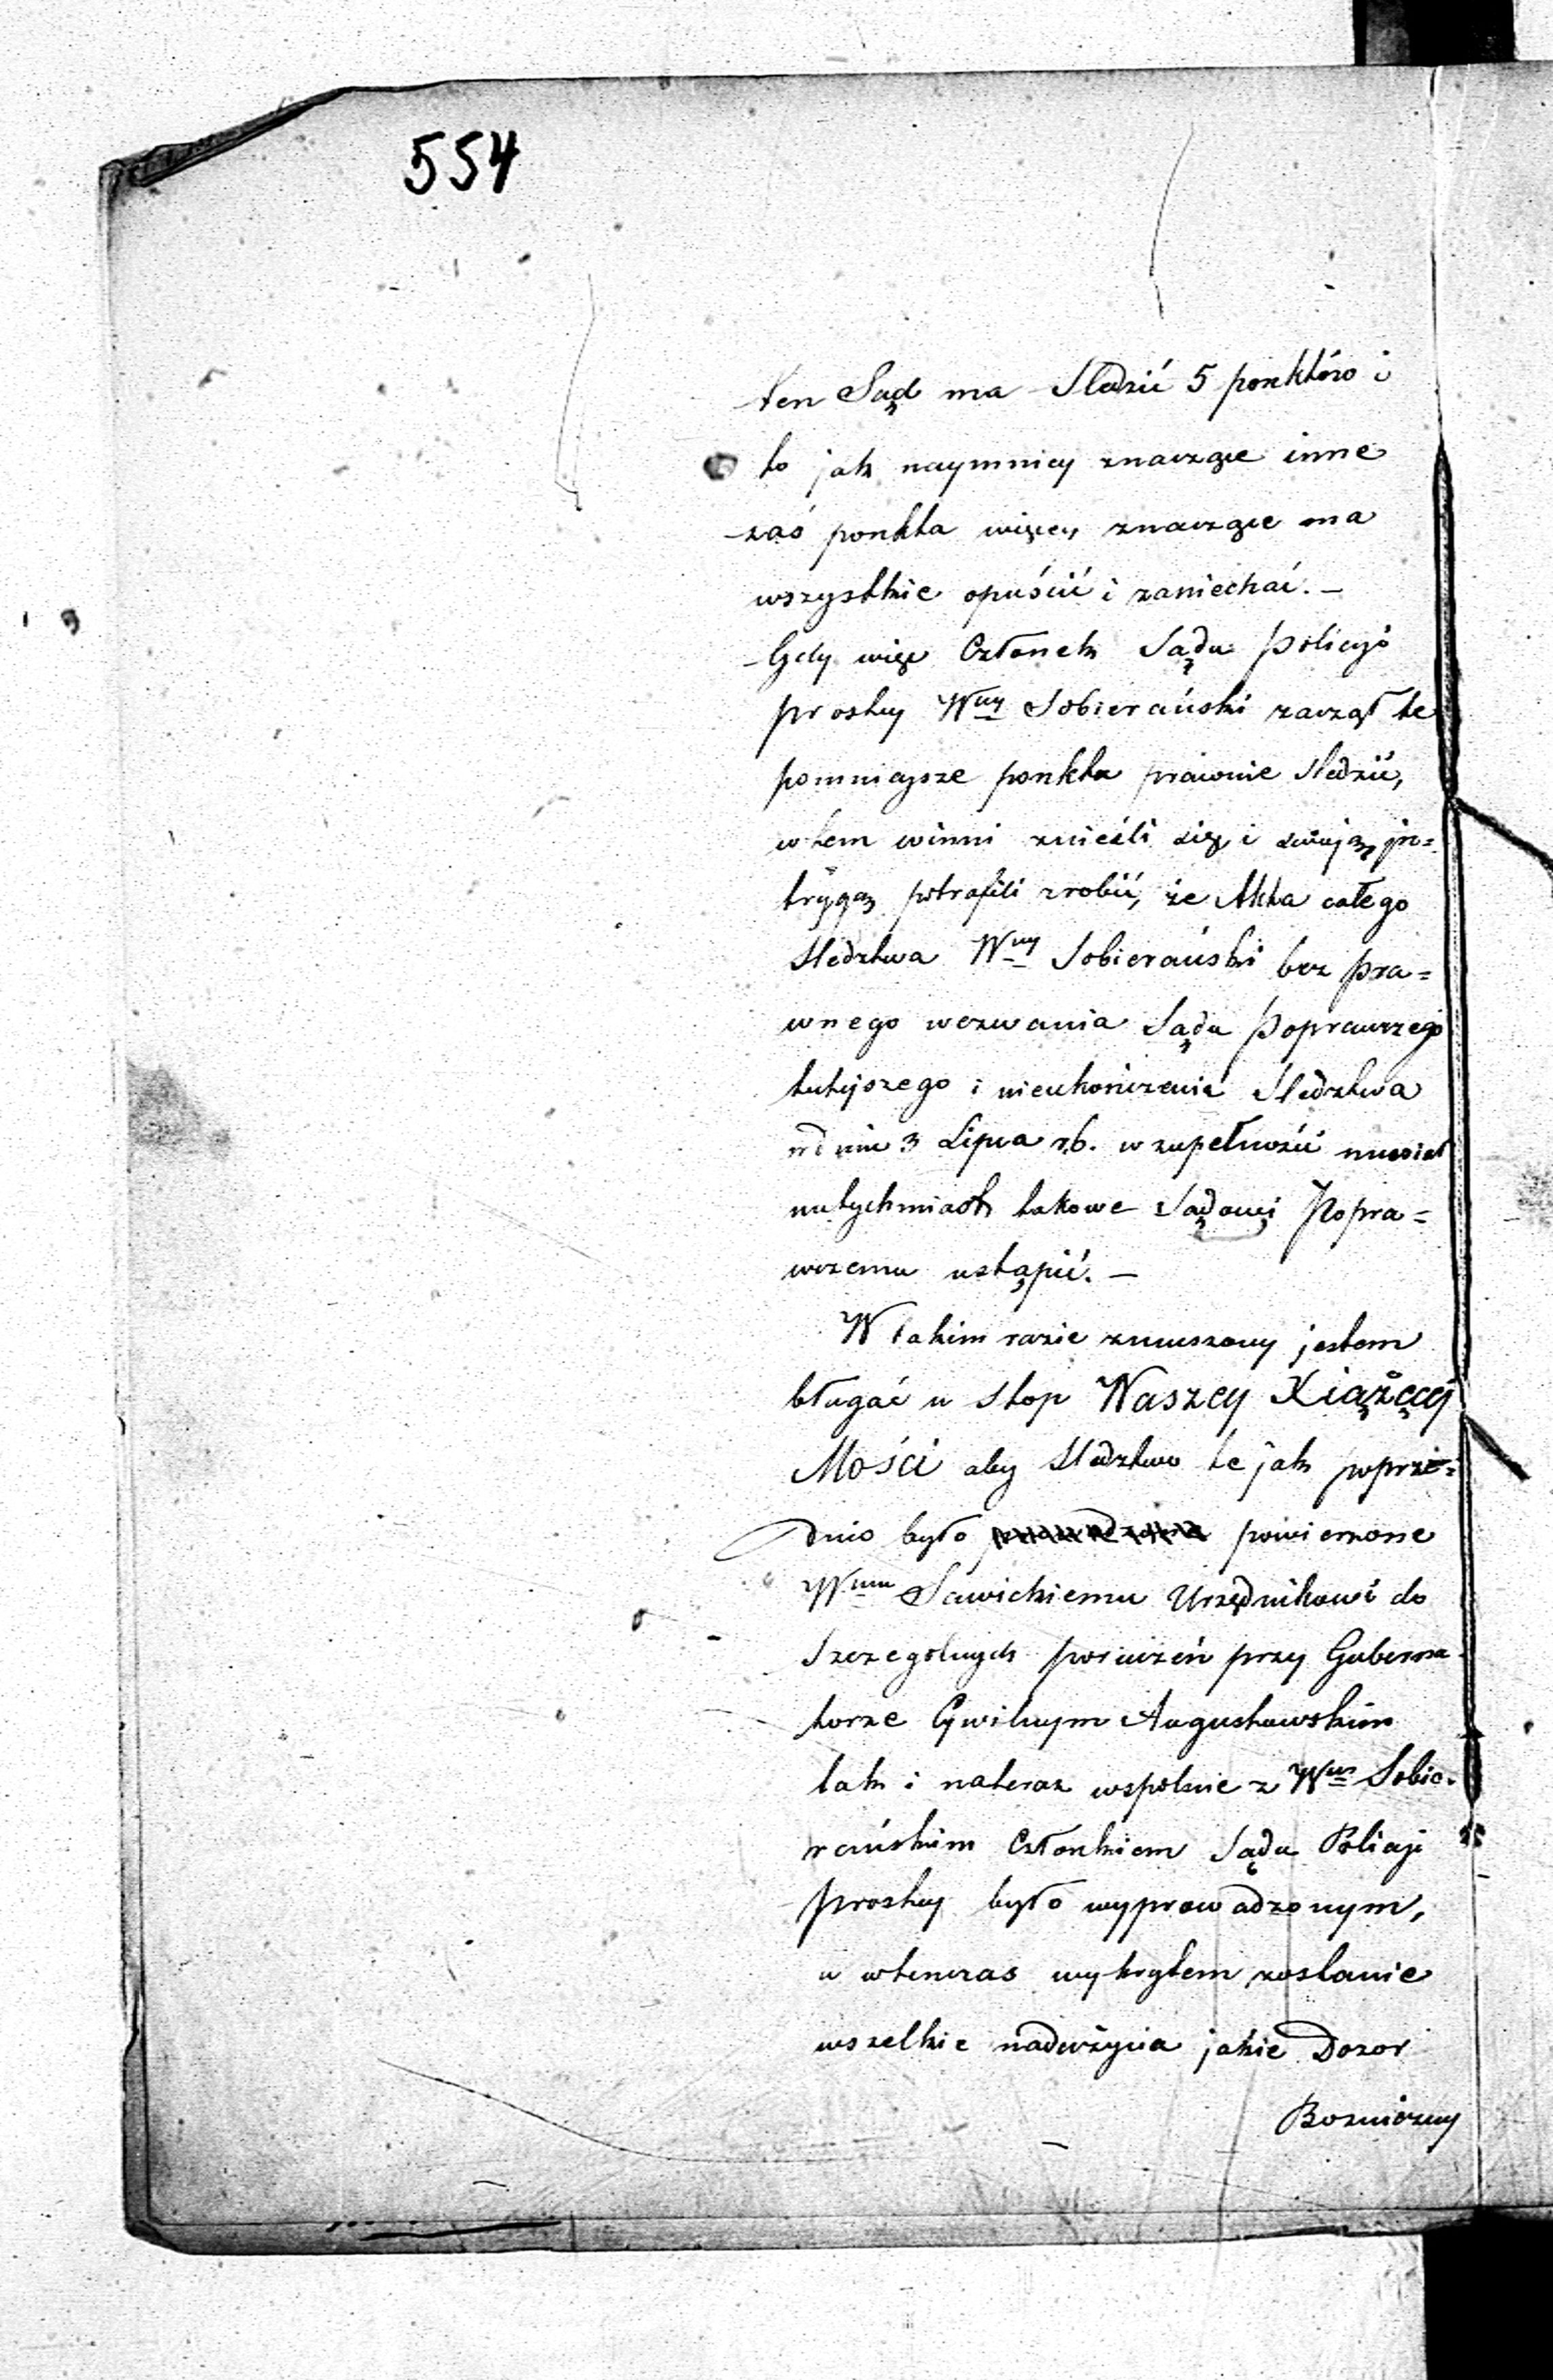 554
ten Sąd ma Sledzić 5 ponktów i
to jak naymniey znaczące inne
zaś ponkta więcey znaczące ma
wszystkie opuścić i zaniechać. –
Gdy więc Członek Sądu Policyi
prostey Wny Sobierański zaczął te
pomniejsze ponkta prawnie sledzić,
w tem winni znieśli się i swoją in=
trygą potrafili zrobić, że Akta całego
Sledztwa Wny Sobierański bez pra=
wnego wezwania Sądu Poprawczego
tutejszego i nieukończenia Sledztwa
w dniu 3 Lipca r.b. w zupełności musiał
natychmiast takowe Sądowi Popra=
wczemu ustąpić. –
W takim razie zmuszony jestem
błagać u stop Waszey Xiążęcey
Mości aby Sledztwo te jak poprze=
dnio było powierzone
Wmu Sawickiemu Urzędnikowi do
Szczególnych poruczeń przy Guberna
torze Cywilnym Augustowskim
tak i nateraz wspolnie z Wm Sobie=
rańskim Członkiem Sądu Policyi
prostey było wyprowadzonym,
a wtenczas wykrytem zostanie
wszelkie nadużycia jakie Dozor
Bozniczny